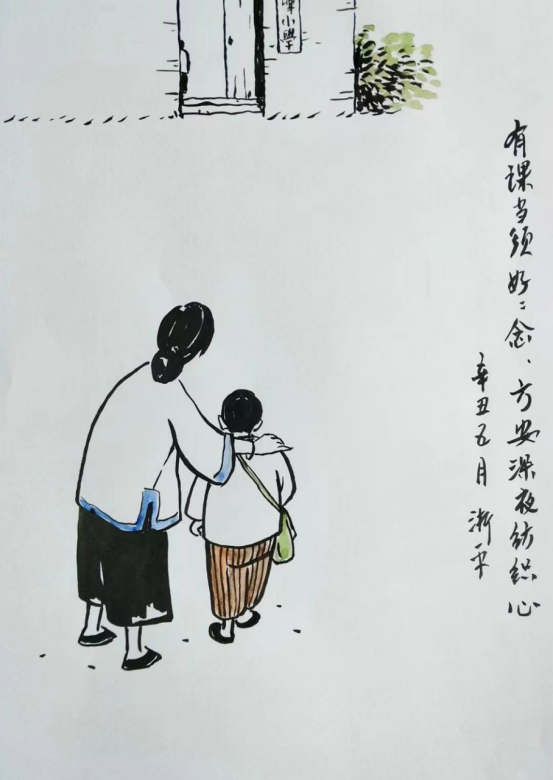 小學
有课当须好〻念、方安深夜纺织心
辛丑五月 平